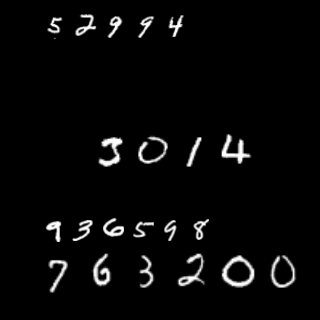 52994
3014
936598
763200